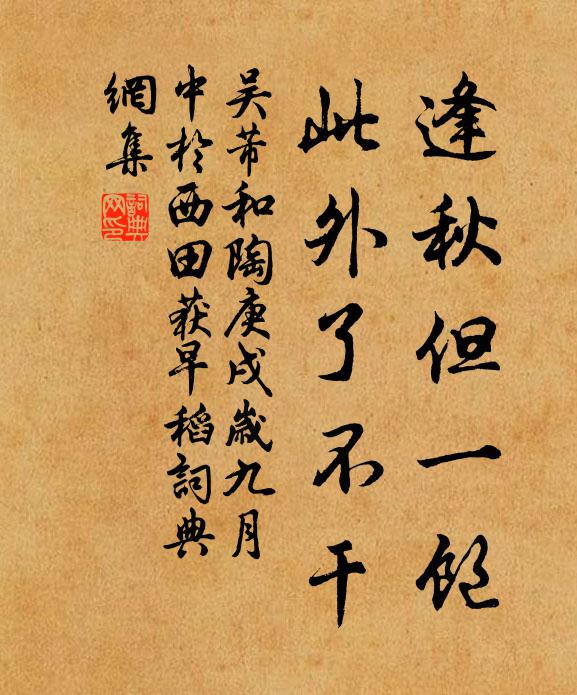 逢秋但一飽
此外了不干
吴芾和陶庚戌歲九月
中於西田获早稻詞典
網集
詞典
网印